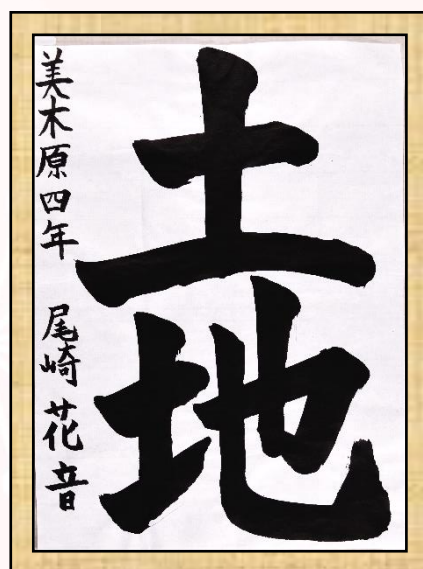 土地
美木原四年 尾崎花音